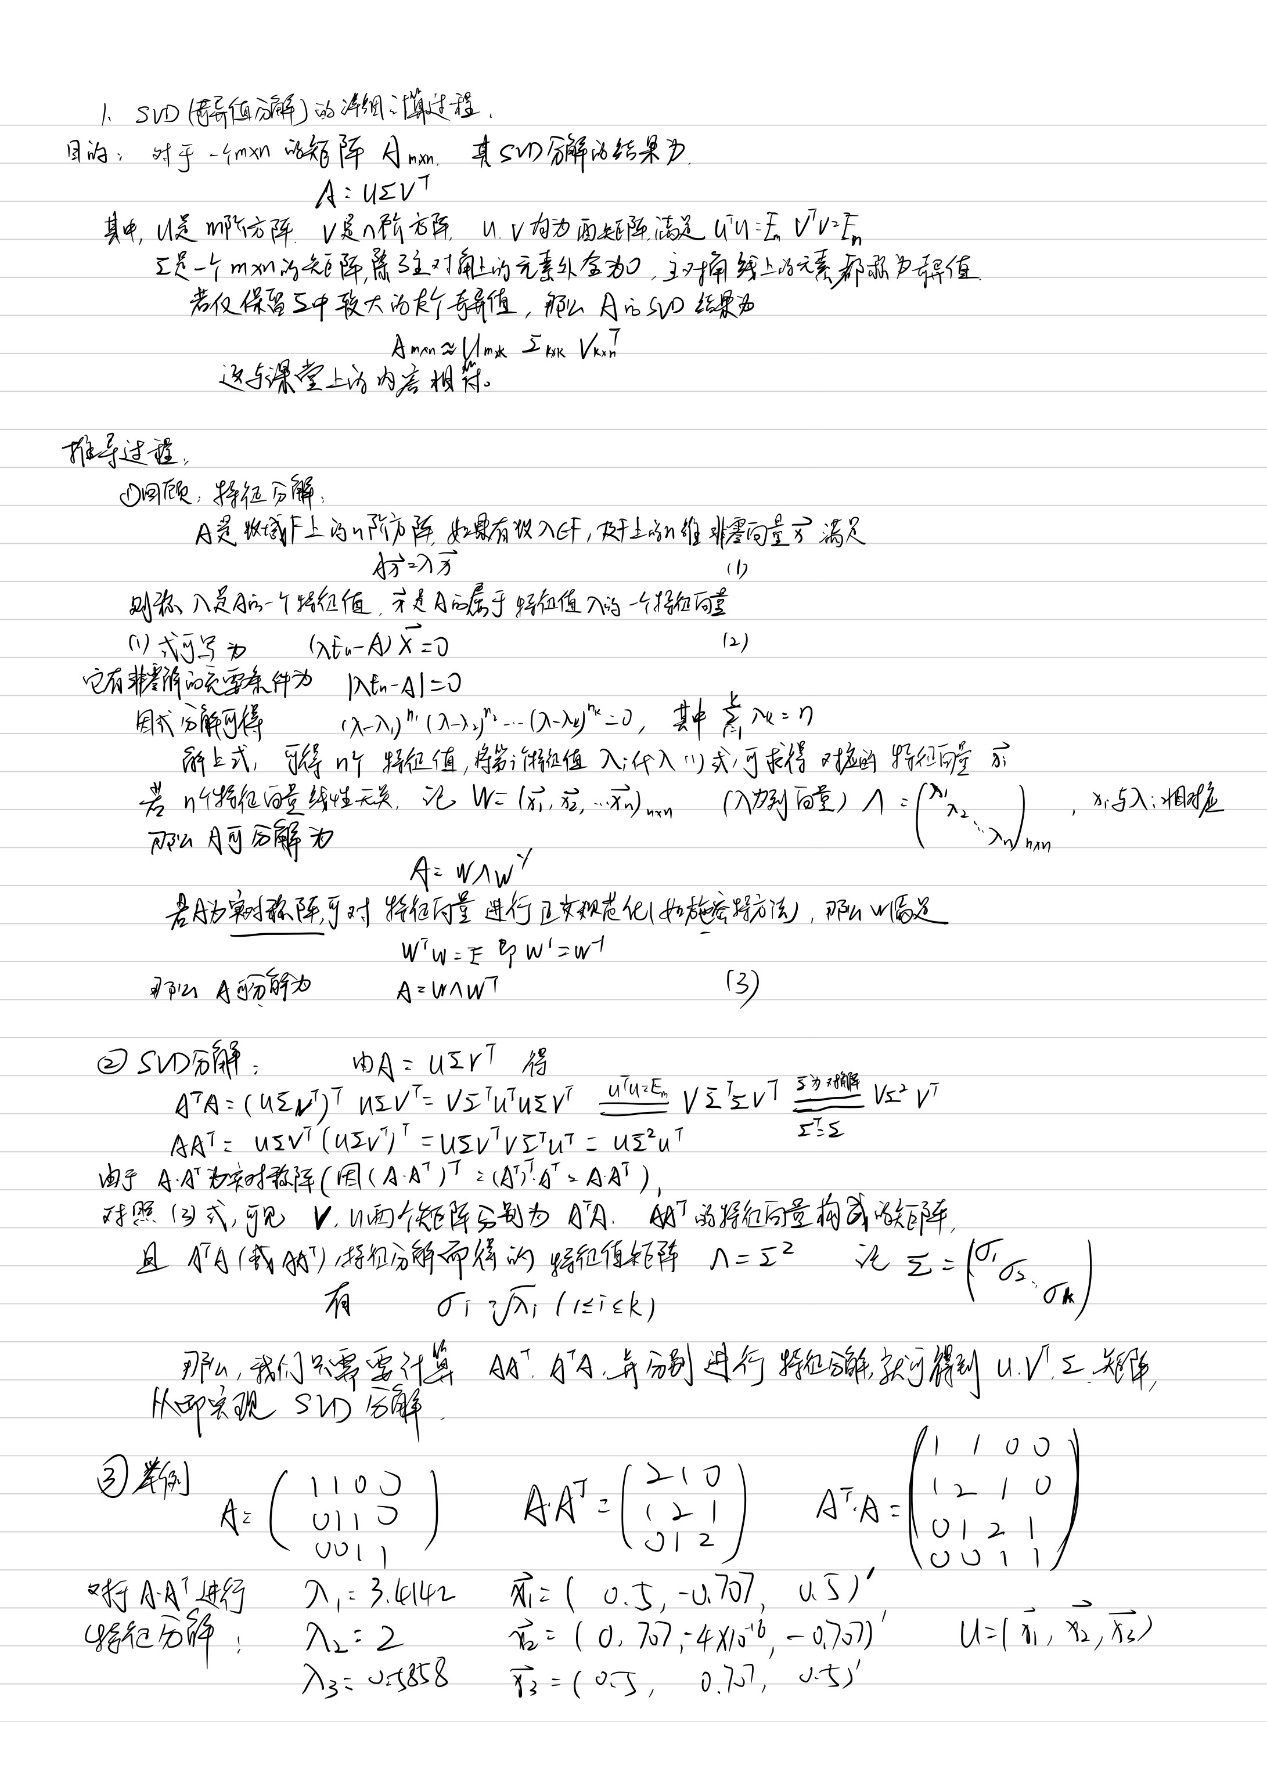 1、SVD(奇异值分解)的详细计算过程.
目的：对于一个m×n的矩阵 Am×n. 其SVD分解的结果为.
A=UΣV^T
其中, U是m阶方阵. V是n阶方阵. U.V均为酉矩阵,满足 U^TU=Em V^TV=En
Σ是一个m×n的矩阵,除了主对角上的元素外全为0, 主对角线上的元素都称为奇异值.
若仅保留Σ中较大的k个奇异值, 那么 A的SVD结果为
Am×n≈Um×k Σk×k Vk×n^T
这与课堂上的内容相符。
推导过程:
①回顾：特征分解:
A是数域F上的n阶方阵, 如果有数λ∈F, 及F上的n维非零向量x⃗ 满足
Ax⃗=λx⃗ (1)
则称 λ是A的一个特征值. x⃗是A的属于特征值λ的一个特征向量
(1)式可写为 (λEn-A)X⃗=0 (2)
它有非零解的充要条件为 |λEn-A|=0
因式分解可得 (λ-λ1)^n1 (λ-λ2)^n2 ... (λ-λk)^nk=0, 其中 λk=n
解上式, 可得n个特征值,将第i个特征值λi代入(1)式,可求得对应的特征向量 x⃗i
若n个特征向量线性无关, 记 W=(x⃗1, x⃗2, ...x⃗n)n×n (λ为列向量) Λ=(λ1 λ2 ⋱ λn)n×n , xi与λi相对应
那么A可分解为
A=WΛW^-1
若A为实对称阵,可对特征向量进行正交规范化(如施密特方法), 那么W满足
W^TW=E 即 W^T=W^-1
那么A可分解为 A=WΛW^T (3)
② SVD分解： 由A=UΣV^T 得
A^TA=(UΣV^T)^T UΣV^T=VΣ^TU^TUΣV^T U^TU=Em VΣ^TΣV^T Σ为对角阵 Σ^T=Σ VΣ²V^T
AA^T=UΣV^T(UΣV^T)^T=UΣV^TVΣ^TU^T=UΣ²U^T
由于 A·A^T为实对称阵(因(A·A^T)^T=(A^T)^T·A^T=A·A^T),
对照(3)式,可见 V.U两个矩阵分别为 A^TA. AA^T的特征向量构成的矩阵,
且 A^TA(或AA^T),特征分解而得的特征值矩阵 Λ=Σ² 记 Σ=(σ1 σ2 ⋱ σk)
有 σi=√λi (1≤i≤k)
那么, 我们只需要计算 AA^T. A^TA. 并分别进行特征分解,就可得到 U.V^T.Σ.矩阵,
从而实现 SVD分解.
③举例 A=(1 1 0 0 / 0 1 1 0 / 0 0 1 1) A·A^T=(2 1 0 / 1 2 1 / 0 1 2) A^T·A=(1 1 0 0 / 1 2 1 0 / 0 1 2 1 / 0 0 1 1)
对A·A^T进行 λ1=3.4142 x⃗1=( 0.5, -0.707, 0.5)'
特征分解： λ2=2 x⃗2=(0.707,-4×10^-16, -0.707)' U=(x⃗1, x⃗2, x⃗3)
λ3=0.5858 x⃗3=(0.5, 0.707, 0.5)'